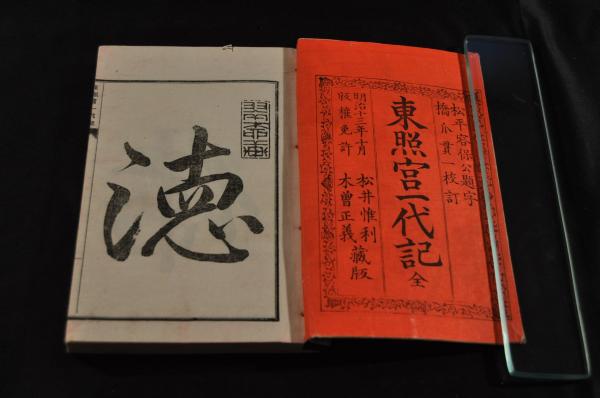 松平容保公題字
橋爪貫一校訂
東照宮一代記 全
明治十三年十月 松井惟利
版権免許 木曽正義 藏版
徳